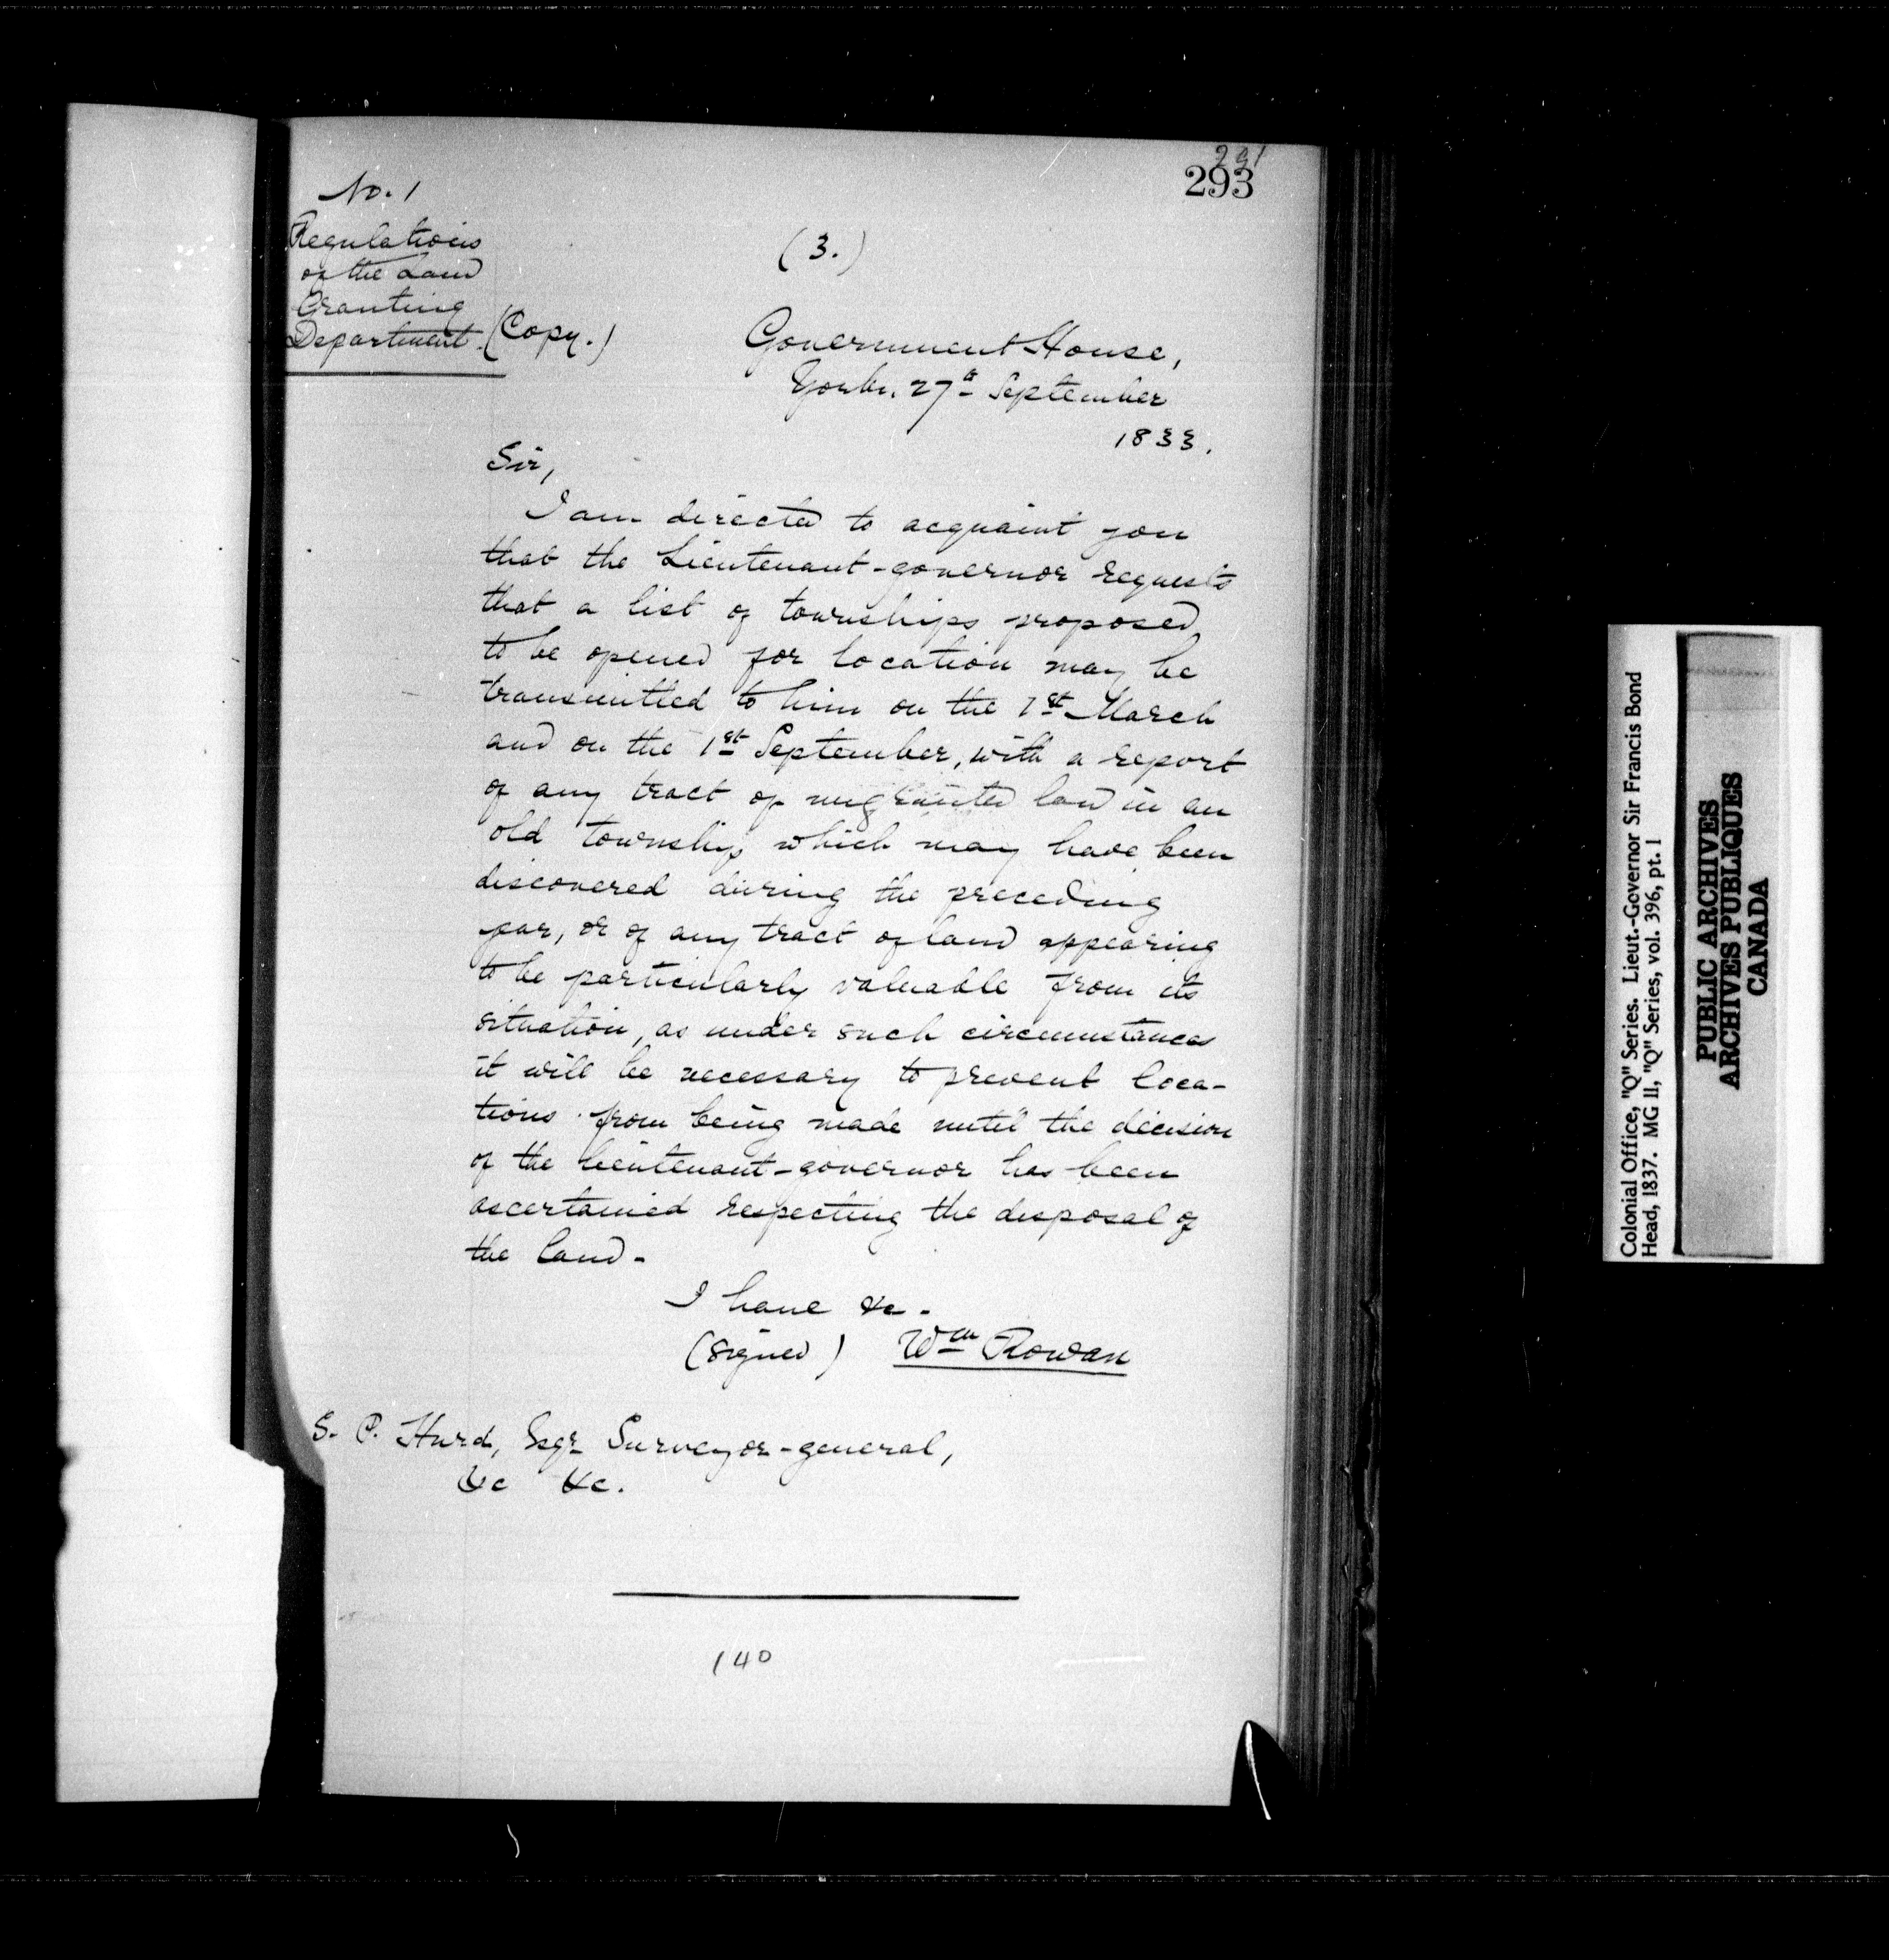 291
293
No. 1
Regulations
of the Land
Granting
Department.
(3.)
(Copy.)
Government House,
York, 27th September
1833.
Sir,
I am directed to acquaint you
that the Lieutenant-governor requests
that a list of townships proposed
to be opened for location may be
transmitted to him on the 1st March
and on the 1st September, with a report
of any tract of ungranted land in an
old township which may have been
discovered during the preceding
year, or of any tract of land appearing
to be particularly valuable from its
situation, as under such circumstances
it will be necessary to prevent loca-
tions from being made until the decision
of the lieutenant-governor has been
ascertained respecting the disposal of
the land.
I have &c.
(signed) Wm Rowan
S. P. Hurd, Esqr Surveyor-general,
&c &c.
140
Colonial Office, "Q" Series. Lieut.-Governor Sir Francis Bond
Head, 1837. MG 11, "Q" Series, vol. 396, pt. 1
PUBLIC ARCHIVES
ARCHIVES PUBLIQUES
CANADA